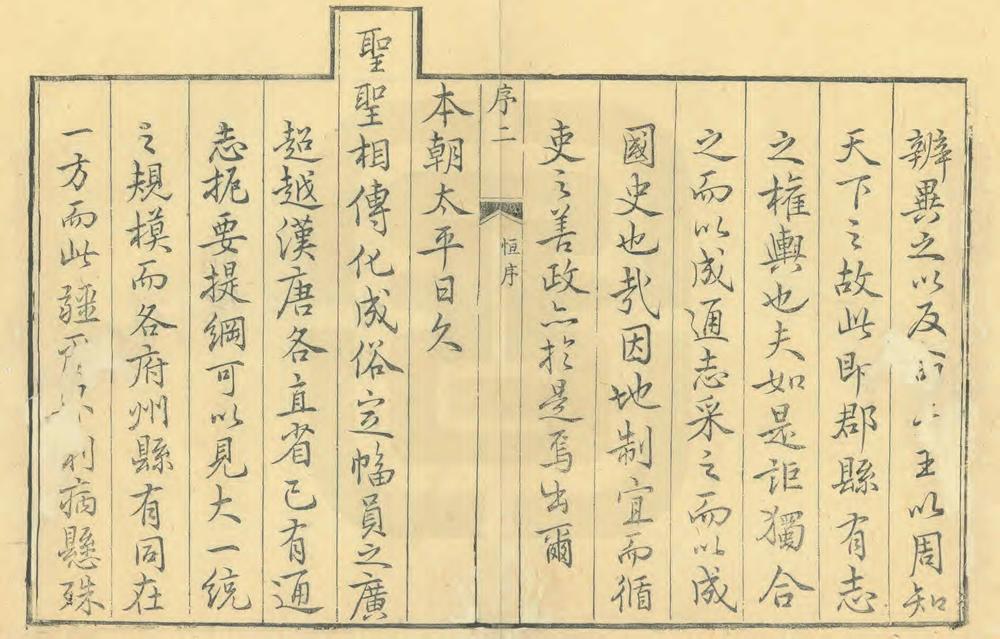 辨異之以反命于王以周知
天下之故此即郡縣有志
之權輿也夫如是詎獨合
之而以成通志采之而以成
國史也哉因地制宜而循
吏之善政亦於是焉出爾
序二
恒序
本朝太平日久
聖聖相傳化成俗定幅員之廣
超越漢唐各直省已有通
志扼要提綱可以見大一統
之規模而各府州縣有同在
一方而此疆 利病懸殊